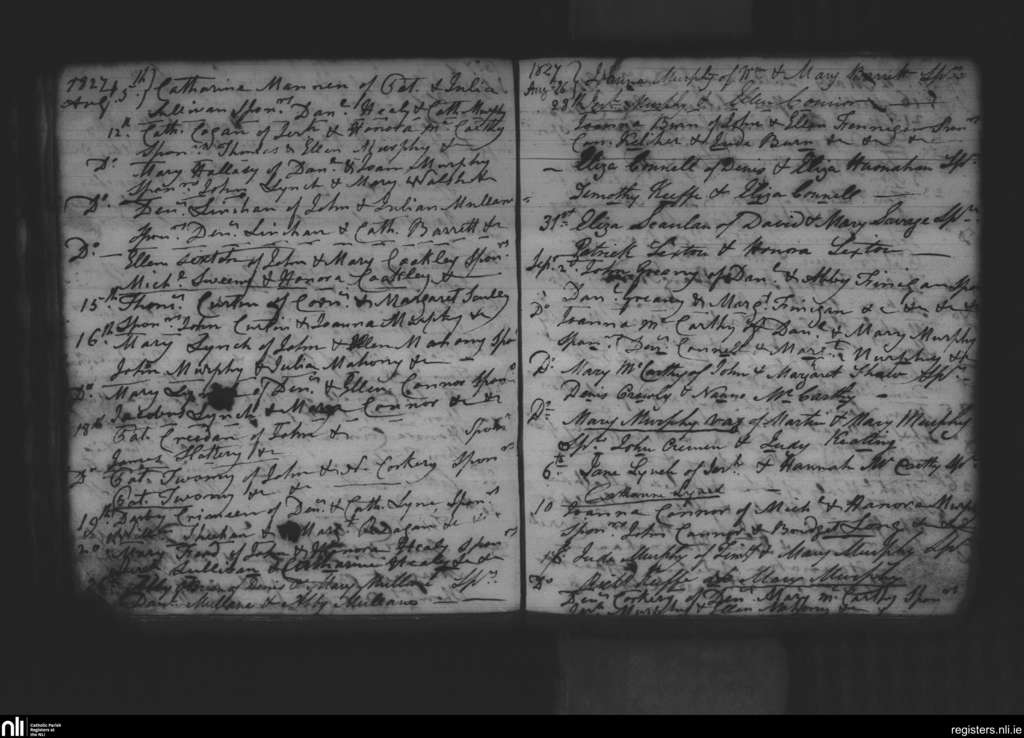 1827 Aug. 5th Catharina Manoren of Pat. & Julia
Sullivan Sponrs Danl Healy & Cath. Murphy
12th Cath. Cogan of Jerh & Honora Mc Carthy
Sponrs Thomas & Ellen Murphy &
Do Mary Hallasy of Danl & Joan Murphy
Sponrs John Lynch & Mary Walsh &
Do Denis Linehan of John & Julian Mullane
Sponrs Denis Linehan & Cath. Barrett &
Do Ellen Sexton of John & Mary Coakley Sponrs
Michl Sweeny & Honora Coakley &
15th Thoms Curtin of Corns & Margaret
Sponrs John Curtin & Joanna Murphy &
16th Mary Lynch of John & Ellen Mahony Spo
John Murphy & Julia Mahony &
Do Mary of Denis & Ellen Connor Sponrs
Jacobus Lynch & Maria Connor & &
18th Pat. Creedan of John & Sponrs
James &
Do Pat. Twomy of John & Corkery Sponrs
Pat Twomy & &
19th Darby Crimeen of Denis & Cath. Lyne Sponrs
Sheehan & Margt &
20 Mary of John & Honora Healy Sponrs
Sullivan & Catharine Healy & &
Abby of Denis & Mary Mullane Sprs
Danl Mullane & Abby Mullane
1827 Aug. 26 Joanna Murphy of Wm & Mary Barrett Sprs
28th Murphy & Ellen Connor
Joanna Burn of John & Ellen Finnigan Sponrs
Corns Kelcher & Juda Burn & & &
Eliza Connell of Denis & Eliza Hanrahan Sprs
Timothy Keeffe & Eliza Connell
31st Eliza Scanlan of David & Mary Savage Sprs
Patrick Sexton & Honora Sexton
Sept. 2d John Greany of Danl & Abby Finigan Spo
Danl Greany & Margt Finigan & & &
Do Joanna Mc Carthy of Danl & Mary Murphy
Sponrs Danl Connell & Margt Murphy &
Do Mary McCarthy of John & Margaret Shaw Sprs
Denis Crowly & Nanne Mc Carthy
Do Mary Murphy of Martin & Mary Murphy
Sprs John & Judy Keating
6th Jane Lynch of Jerh & Hannah Mc Carthy Sprs
Catharine Lynch
10 Joanna Connor of Michl & Hanora Murphy
Sponrs John Connor & Bridget Long & &
Juda Murphy of Timth & Mary Murphy Sprs
Keeffe & Mary Murphy
Do Denis Corkery of Denis Mary Mc Carthy Sponrs
Jerh Murphy & Ellen Mahony &
nli
Catholic Parish
Registers at
the NLI
registers.nli.ie